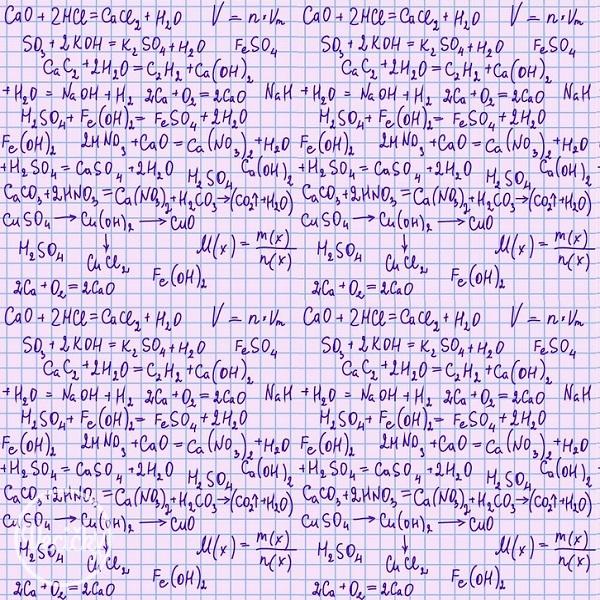 CaO + 2HCl = CaCl₂ + H₂O V = n·Vm CaO + 2HCl = CaCl₂ + H₂O V = n·Vm
SO₃ + 2KOH = K₂SO₄ + H₂O FeSO₄ SO₃ + 2KOH = K₂SO₄ + H₂O FeSO₄
CaC₂ + 2H₂O = C₂H₂ + Ca(OH)₂ CaC₂ + 2H₂O = C₂H₂ + Ca(OH)₂
+ H₂O = NaOH + H₂ 2Ca + O₂ = 2CaO NaH + H₂O = NaOH + H₂ 2Ca + O₂ = 2CaO NaH
H₂SO₄ + Fe(OH)₂ = FeSO₄ + 2H₂O H₂SO₄ + Fe(OH)₂ = FeSO₄ + 2H₂O
Fe(OH)₂ 2HNO₃ + CaO = Ca(NO₃)₂ + H₂O Fe(OH)₂ 2HNO₃ + CaO = Ca(NO₃)₂ + H₂O
+ H₂SO₄ = CaSO₄ + 2H₂O H₂SO₄ Ca(OH)₂ + H₂SO₄ = CaSO₄ + 2H₂O H₂SO₄ Ca(OH)₂
CaCO₃ + 2HNO₃ = Ca(NO₃)₂ + H₂CO₃ → (CO₂↑ + H₂O) CaCO₃ + 2HNO₃ = Ca(NO₃)₂ + H₂CO₃ → (CO₂↑ + H₂O)
CuSO₄ → Cu(OH)₂ → CuO CuSO₄ → Cu(OH)₂ → CuO
H₂SO₄ ↓ M(x) = m(x)/n(x) H₂SO₄ ↓ M(x) = m(x)/n(x)
CuCl₂ Fe(OH)₂ CuCl₂ Fe(OH)₂
2Ca + O₂ = 2CaO 2Ca + O₂ = 2CaO
CaO + 2HCl = CaCl₂ + H₂O V = n·Vm CaO + 2HCl = CaCl₂ + H₂O V = n·Vm
SO₃ + 2KOH = K₂SO₄ + H₂O FeSO₄ SO₃ + 2KOH = K₂SO₄ + H₂O FeSO₄
CaC₂ + 2H₂O = C₂H₂ + Ca(OH)₂ CaC₂ + 2H₂O = C₂H₂ + Ca(OH)₂
+ H₂O = NaOH + H₂ 2Ca + O₂ = 2CaO NaH + H₂O = NaOH + H₂ 2Ca + O₂ = 2CaO NaH
H₂SO₄ + Fe(OH)₂ = FeSO₄ + 2H₂O H₂SO₄ + Fe(OH)₂ = FeSO₄ + 2H₂O
Fe(OH)₂ 2HNO₃ + CaO = Ca(NO₃)₂ + H₂O Fe(OH)₂ 2HNO₃ + CaO = Ca(NO₃)₂ + H₂O
+ H₂SO₄ = CaSO₄ + 2H₂O H₂SO₄ Ca(OH)₂ + H₂SO₄ = CaSO₄ + 2H₂O H₂SO₄ Ca(OH)₂
CaCO₃ + 2HNO₃ = Ca(NO₃)₂ + H₂CO₃ → (CO₂↑ + H₂O) CaCO₃ + 2HNO₃ = Ca(NO₃)₂ + H₂CO₃ → (CO₂↑ + H₂O)
CuSO₄ → Cu(OH)₂ → CuO CuSO₄ → Cu(OH)₂ → CuO
H₂SO₄ ↓ M(x) = m(x)/n(x) H₂SO₄ ↓ M(x) = m(x)/n(x)
CuCl₂ Fe(OH)₂ CuCl₂ Fe(OH)₂
2Ca + O₂ = 2CaO 2Ca + O₂ = 2CaO